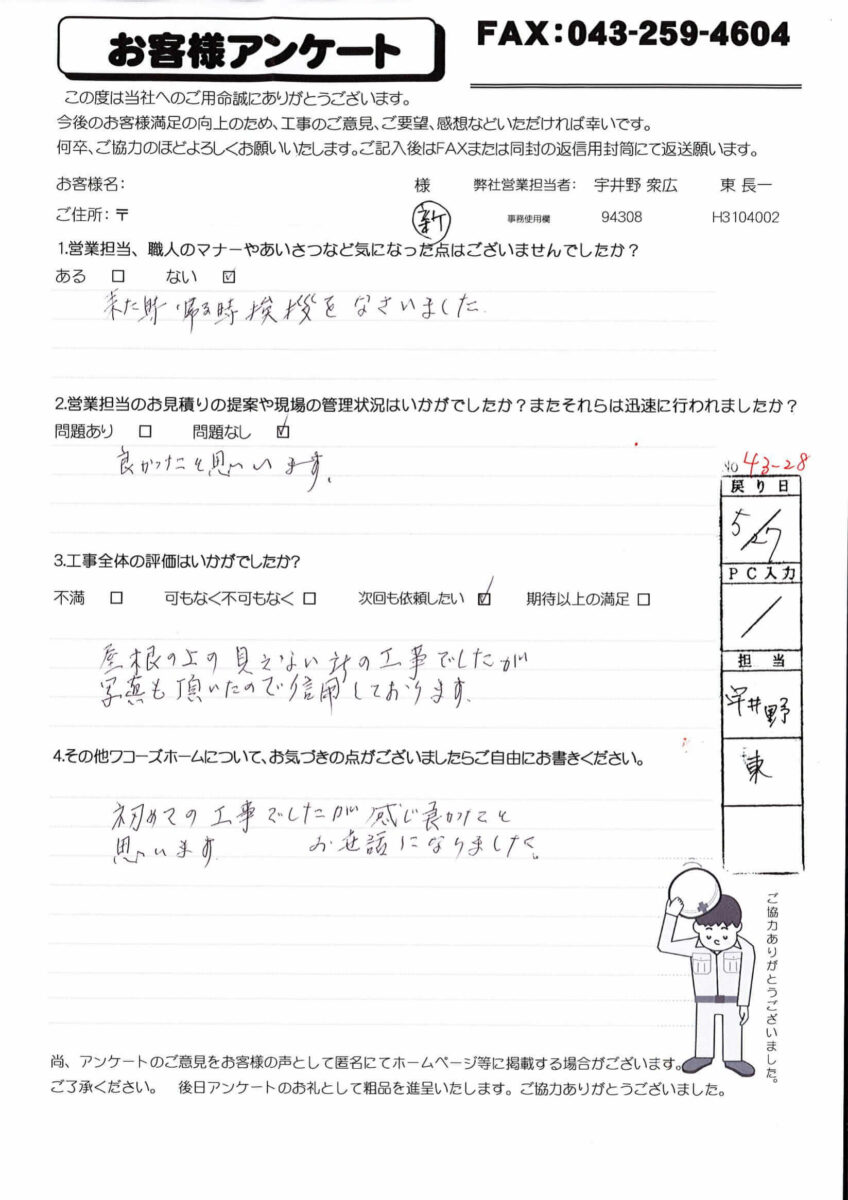 お客様アンケート
FAX:043-259-4604
この度は当社へのご用命誠にありがとうございます。
今後のお客様満足の向上のため、工事のご意見、ご要望、感想などいただければ幸いです。
何卒、ご協力のほどよろしくお願いいたします。ご記入後はFAXまたは同封の返信用封筒にて返送願います。
お客様名: 様 弊社営業担当者: 宇井野 衆広 東 長一
ご住所:〒 新 事務使用欄 94308 H3104002
1.営業担当、職人のマナーやあいさつなど気になった点はございませんでしたか?
ある □ ない ☑
来た時・帰る時挨拶をなさいました
2.営業担当のお見積りの提案や現場の管理状況はいかがでしたか?またそれらは迅速に行われましたか?
問題あり □ 問題なし ☑
良かったと思います。
3.工事全体の評価はいかがでしたか?
不満 □ 可もなく不可もなく □ 次回も依頼したい ☑ 期待以上の満足 □
屋根の上の見えない所の工事でしたが
写真も頂いたので信用しております。
4.その他ワコーズホームについて、お気づきの点がございましたらご自由にお書きください。
初めての工事でしたが感じ良かったと
思います。 お世話になりました。
NO 43-28
戻り日
5/27
PC入力
/
担当
宇井野
東
ご協力ありがとうございました。
尚、アンケートのご意見をお客様の声として匿名にてホームページ等に掲載する場合がございます。
ご了承ください。 後日アンケートのお礼として粗品を進呈いたします。ご協力ありがとうございました。